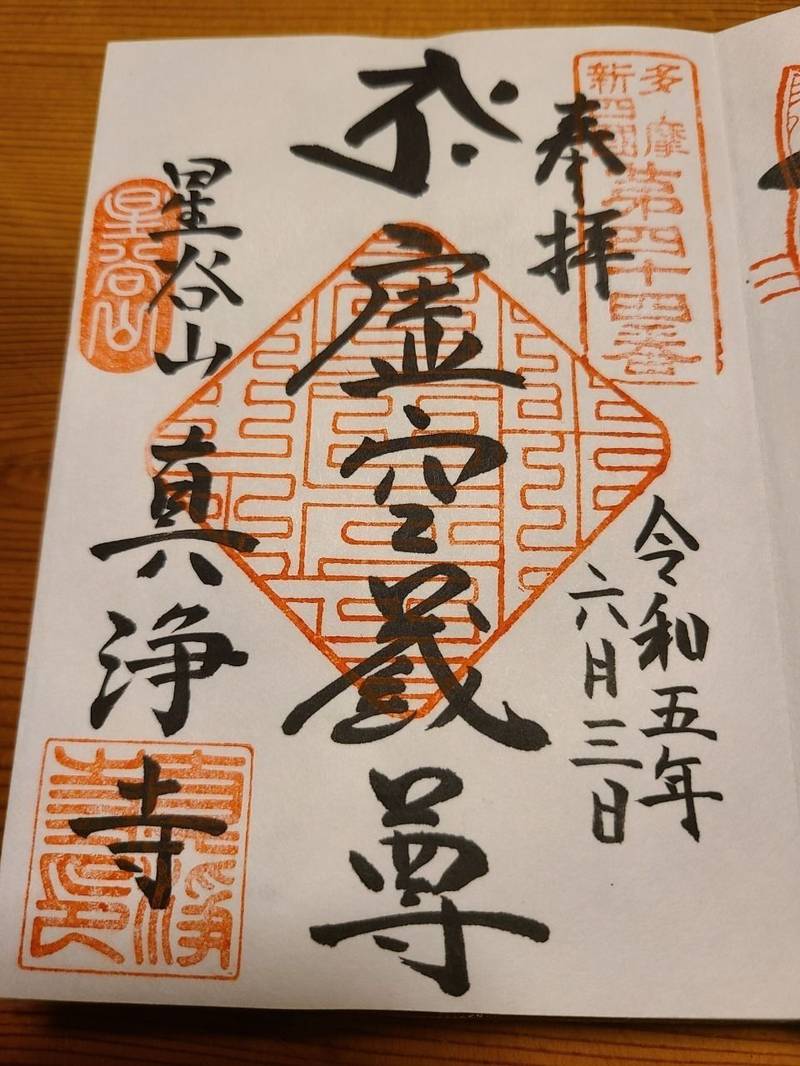 多摩
新四国
第四十四番
奉拝
令和五年
六月三日
虚空蔵尊
星谷山 真浄寺
星谷山
真淨
寺印